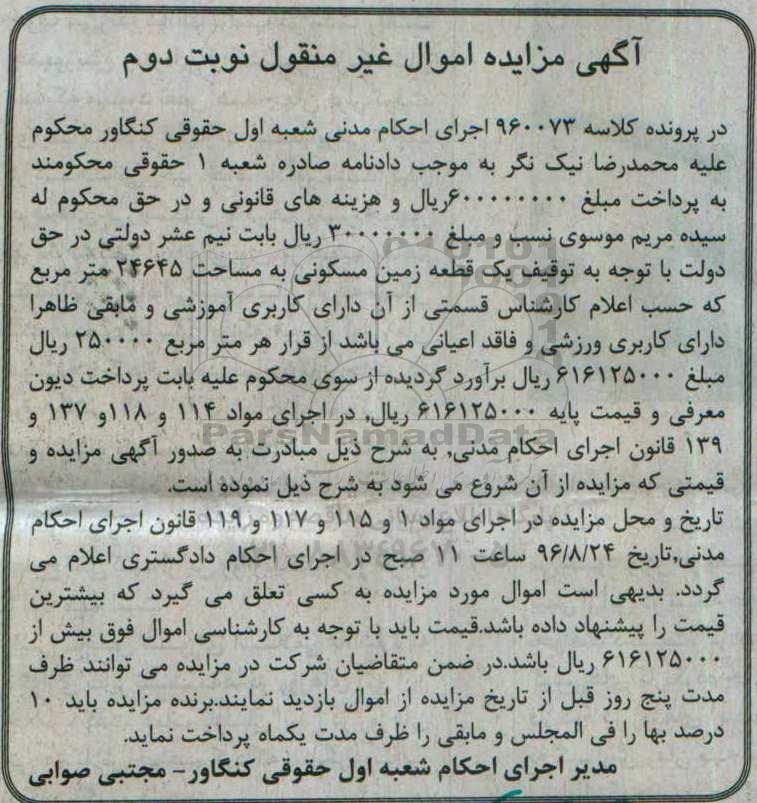 آگهی مزایده اموال غیر منقول نوبت دوم
در پرونده کلاسه ۹۶۰۰۷۳ اجرای احکام مدنی شعبه اول حقوقی کنگاور محکوم
علیه محمدرضا نیک نگر به موجب دادنامه صادره شعبه ۱ حقوقی محکومند
به پرداخت مبلغ ۶۰۰۰۰۰۰۰۰ریال و هزینه های قانونی و در حق محکوم له
سیده مریم موسوی نسب و مبلغ ۳۰۰۰۰۰۰۰ ریال بابت نیم عشر دولتی در حق
دولت با توجه به توقیف یک قطعه زمین مسکونی به مساحت ۲۴۶۴۵ متر مربع
که حسب اعلام کارشناس قسمتی از آن دارای کاربری آموزشی و مابقی ظاهرا
دارای کاربری ورزشی و فاقد اعیانی می باشد از قرار هر متر مربع ۲۵۰۰۰۰ ریال
مبلغ ۶۱۶۱۲۵۰۰۰ ریال برآورد گردیده از سوی محکوم علیه بابت پرداخت دیون
معرفی و قیمت پایه ۶۱۶۱۲۵۰۰۰ ریال, در اجرای مواد ۱۱۴ و ۱۱۸و ۱۳۷ و
۱۳۹ قانون اجرای احکام مدنی, به شرح ذیل مبادرت به صدور آگهی مزایده و
قیمتی که مزایده از آن شروع می شود به شرح ذیل نموده است.
تاریخ و محل مزایده در اجرای مواد ۱ و ۱۱۵ و ۱۱۷ و ۱۱۹ قانون اجرای احکام
مدنی,تاریخ ۹۶/۸/۲۴ ساعت ۱۱ صبح در اجرای احکام دادگستری اعلام می
گردد. بدیهی است اموال مورد مزایده به کسی تعلق می گیرد که بیشترین
قیمت را پیشنهاد داده باشد.قیمت باید با توجه به کارشناسی اموال فوق بیش از
۶۱۶۱۲۵۰۰۰ ریال باشد.در ضمن متقاضیان شرکت در مزایده می توانند ظرف
مدت پنج روز قبل از تاریخ مزایده از اموال بازدید نمایند.برنده مزایده باید ۱۰
درصد بها را فی المجلس و مابقی را ظرف مدت یکماه پرداخت نماید.
مدیر اجرای احکام شعبه اول حقوقی کنگاور- مجتبی صوابی
ParsNamadData